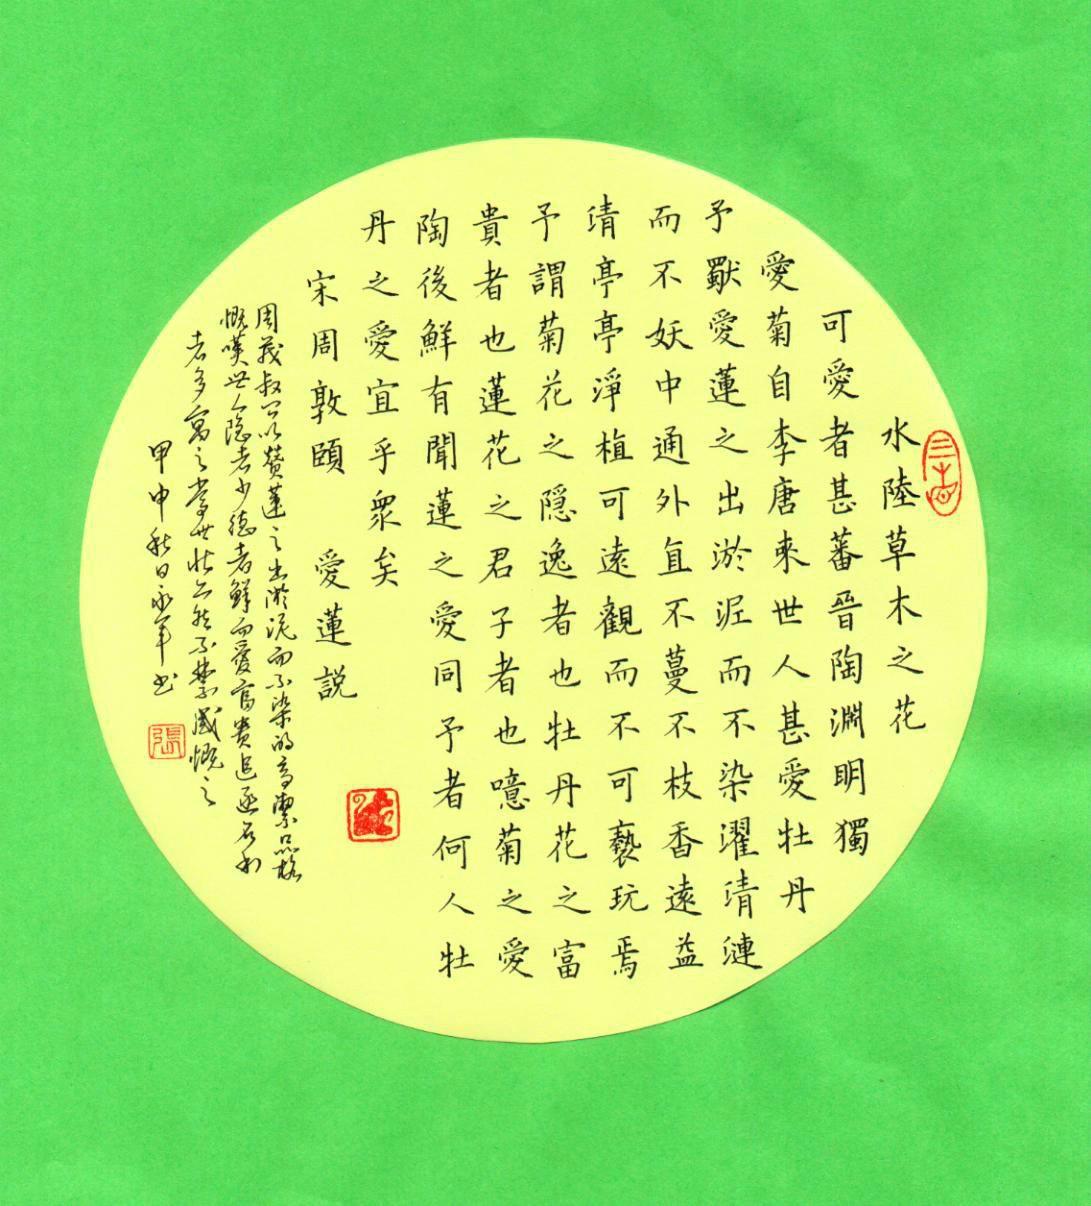 水陸草木之花
可愛者甚蕃晉陶淵明獨
愛菊自李唐來世人甚愛牡丹
予獸愛蓮之出淤泥而不染濯清漣
而不妖中通外直不蔓不枝香遠益
清亭亭淨植可遠觀而不可褻玩焉
予謂菊花之隱逸者也牡丹花之富
貴者也蓮花之君子者也噫菊之愛
陶後鮮有聞蓮之愛同予者何人牡
丹之愛宜乎衆矣
宋周敦頤 愛蓮説
周茂叔公以贊蓮之出淤泥而不染的高潔品格
慨嘆世隐者少德者鮮而愛富貴追逐名利
者多寫之當世狀亦然不禁感慨之
甲申秋日永年书
張